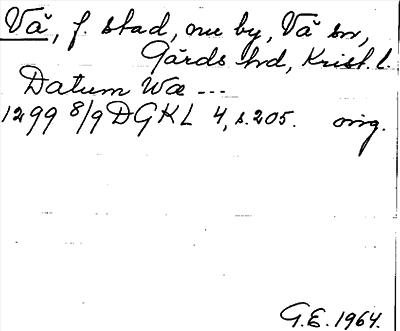 Vä, f. stad, nu by, Vä sn,
Gärds hd, Krist. l.
Datum Wæ ---
1299 8/9 DGKL 4, s. 205. orig.
G.E. 1964.